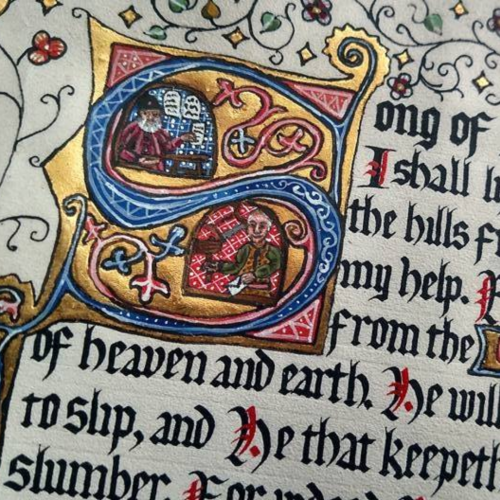 Song of
I shall
the hills
my help.
from the
of heaven and earth. He will
to slip, and He that keepeth
slumber. For